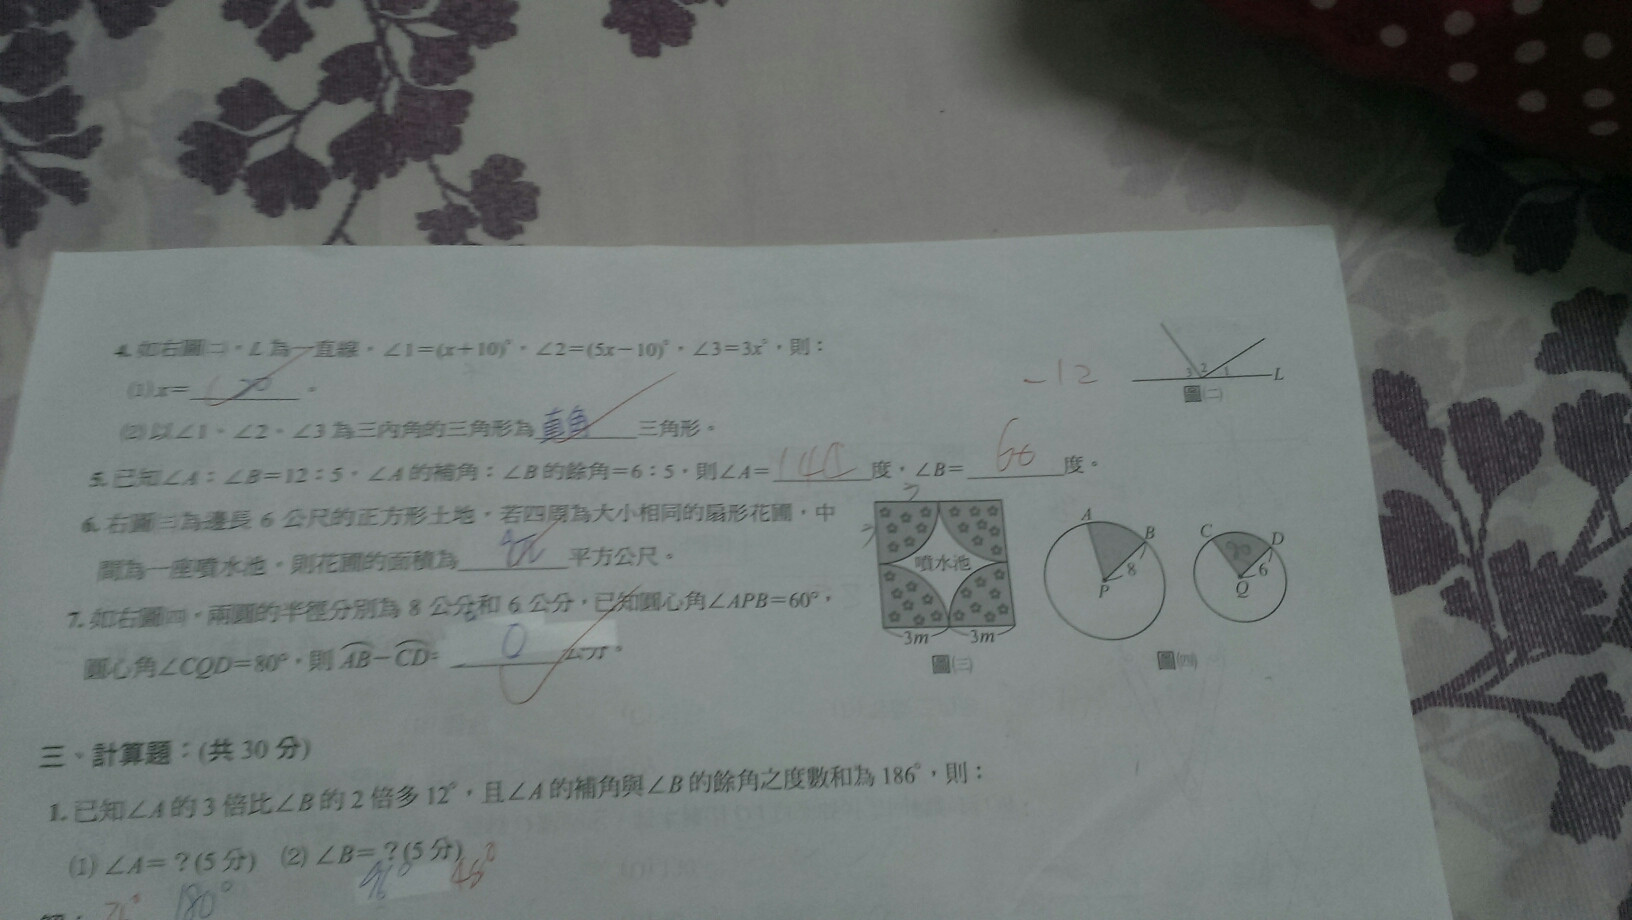 4. 如右圖㈡，L 為一直線，∠1=(x+10)°，∠2=(5x−10)°，∠3=3x°，則：
(1) x= 20 。
(2) 以∠1、∠2、∠3 為三內角的三角形為 直角 三角形。
−12
3 2 1 L
圖㈡
5. 已知∠A：∠B=12：5，∠A 的補角：∠B 的餘角=6：5，則∠A= 度，∠B= 60 度。
6. 右圖㈢為邊長 6 公尺的正方形土地，若四周為大小相同的扇形花圃，中
間為一座噴水池，則花圃的面積為 9π 平方公尺。
噴水池
3m 3m
圖㈢
A B 8 P
C D 6 Q
圖㈣
7. 如右圖㈣，兩圓的半徑分別為 8 公分和 6 公分，已知圓心角∠APB=60°，
圓心角∠CQD=80°，則 AB−CD= 0 公分。
三、計算題：(共 30 分)
1. 已知∠A 的 3 倍比∠B 的 2 倍多 12°，且∠A 的補角與∠B 的餘角之度數和為 186°，則：
(1) ∠A=？(5 分) (2) ∠B=？(5 分)
180° 48°